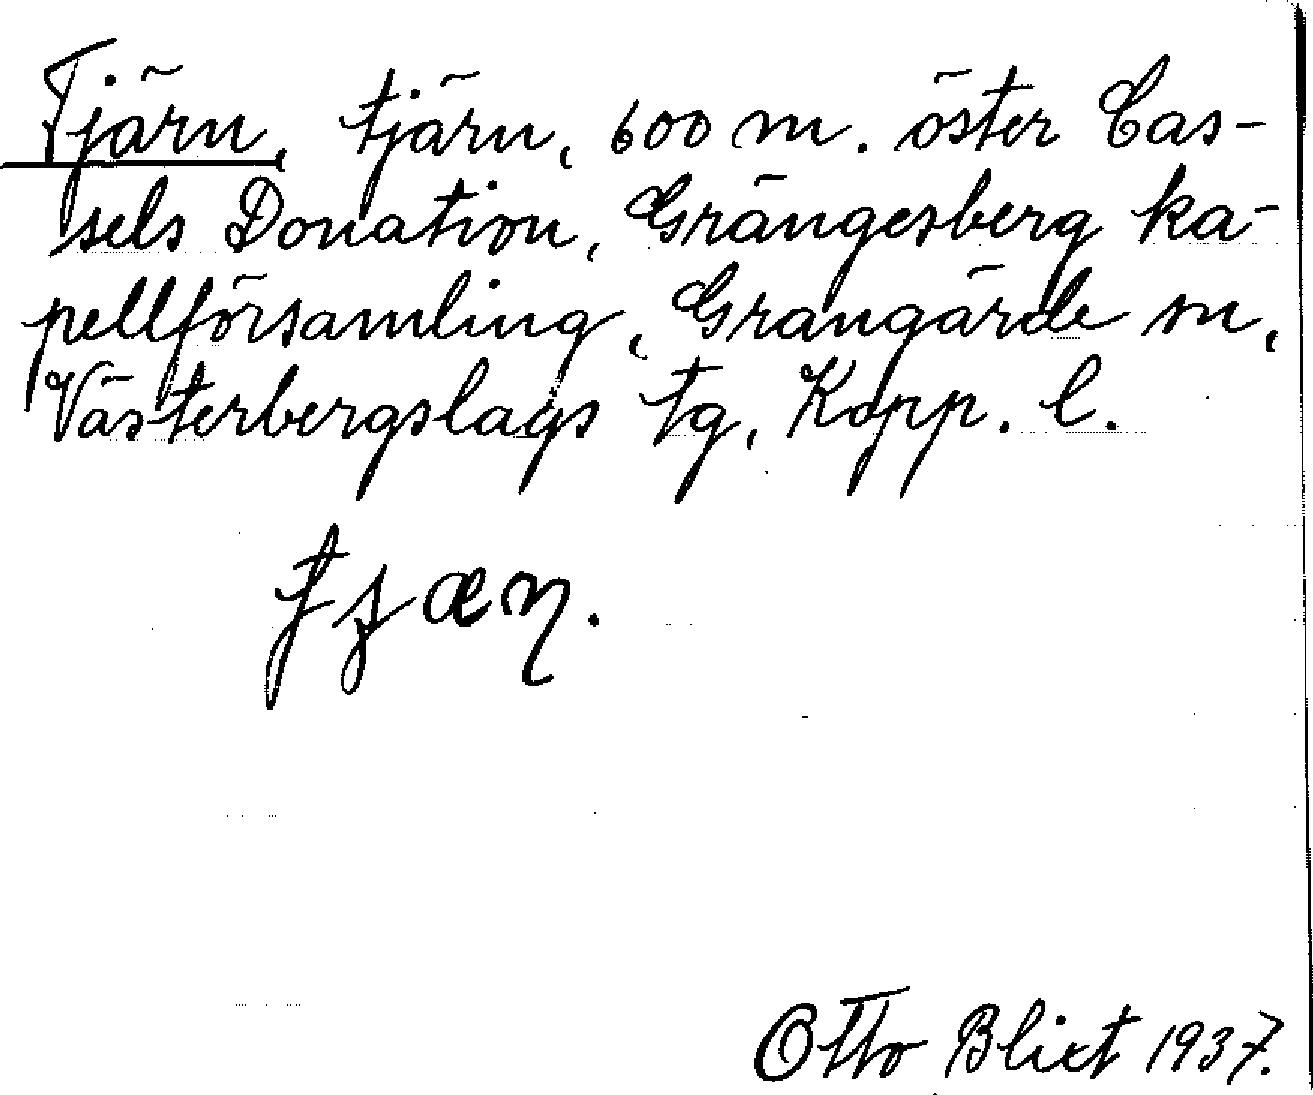 Tjärn, tjärn, 600 m. öster Cas-
sels Donation, Grängesberg ka-
pellförsamling, Grangärde sn,
Västerbergslags tg, Kopp. l.
Otto Blixt 1937.